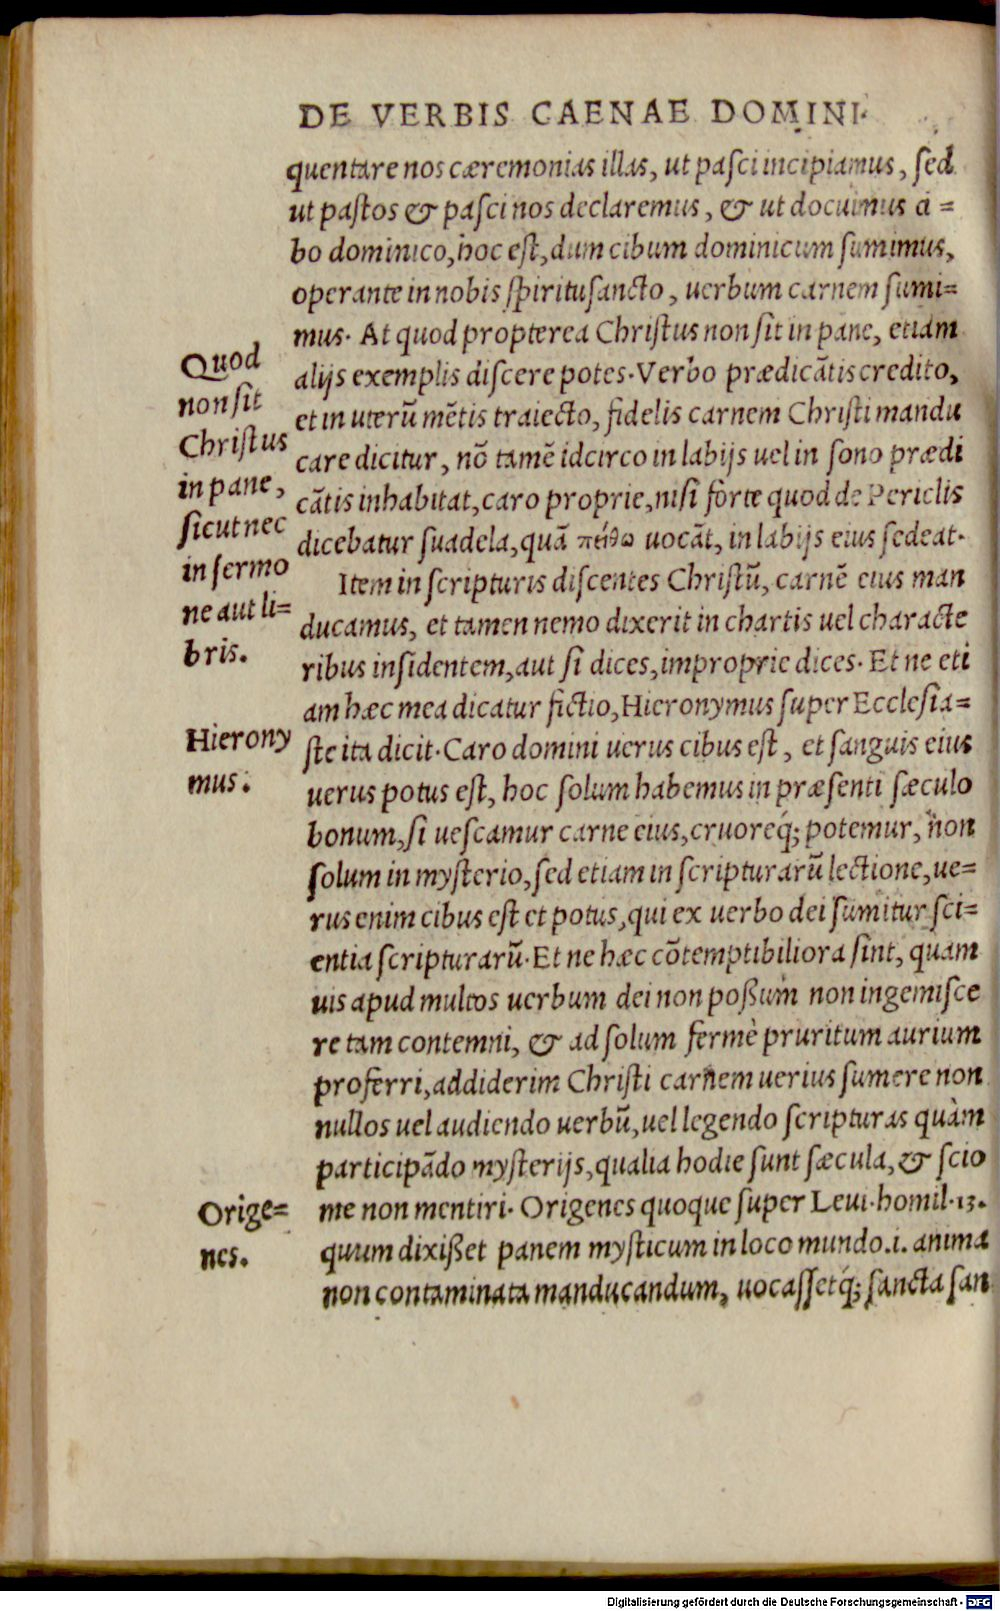 DE VERBIS CAENAE DOMINI.
quentare nos cæremonias illas, ut pasci incipiamus, sed
ut pastos & pasci nos declaremus, & ut docuimus ci=
bo dominico, hoc est, dum cibum dominicum sumimus,
operante in nobis spiritusancto, uerbum carnem sumi=
mus. At quod propterea Christus non sit in pane, etiam
alijs exemplis discere potes. Verbo prædicãtis credito,
et in uterũ mẽtis traiecto, fidelis carnem Christi mandu
care dicitur, nõ tamẽ idcirco in labijs uel in sono prædi
cãtis inhabitat, caro proprie, nisi forte quod de Periclis
dicebatur suadela, quã πείθω uocãt, in labijs eius sedeat.
Item in scripturis discentes Christũ, carnẽ eius man
ducamus, et tamen nemo dixerit in chartis uel characte
ribus insidentem, aut si dices, improprie dices. Et ne eti
am hæc mea dicatur fictio, Hieronymus super Ecclesia=
ste ita dicit. Caro domini uerus cibus est, et sanguis eius
uerus potus est, hoc solum habemus in præsenti sæculo
bonum, si uescamur carne eius, cruoreq́; potemur, non
solum in mysterio, sed etiam in scripturarũ lectione, ue=
rus enim cibus est et potus, qui ex uerbo dei sumitur sci=
entia scripturarũ. Et ne hæc cõtemptibiliora sint, quam
uis apud multos uerbum dei non poßum non ingemisce
re tam contemni, & ad solum fermè pruritum aurium
proferri, addiderim Christi carnem uerius sumere non
nullos uel audiendo uerbũ, uel legendo scripturas quàm
participãdo mysterijs, qualia hodie sunt sæcula, & scio
me non mentiri. Origenes quoque super Leui. homil. 13.
quum dixißet panem mysticum in loco mundo .i. anima
non contaminata manducandum, uocassetq́; sancta san
Quod
non sit
Christus
in pane,
sicut nec
in sermo
ne aut li=
bris.
Hierony
mus.
Orige=
nes.
Digitalisierung gefördert durch die Deutsche Forschungsgemeinschaft - DFG